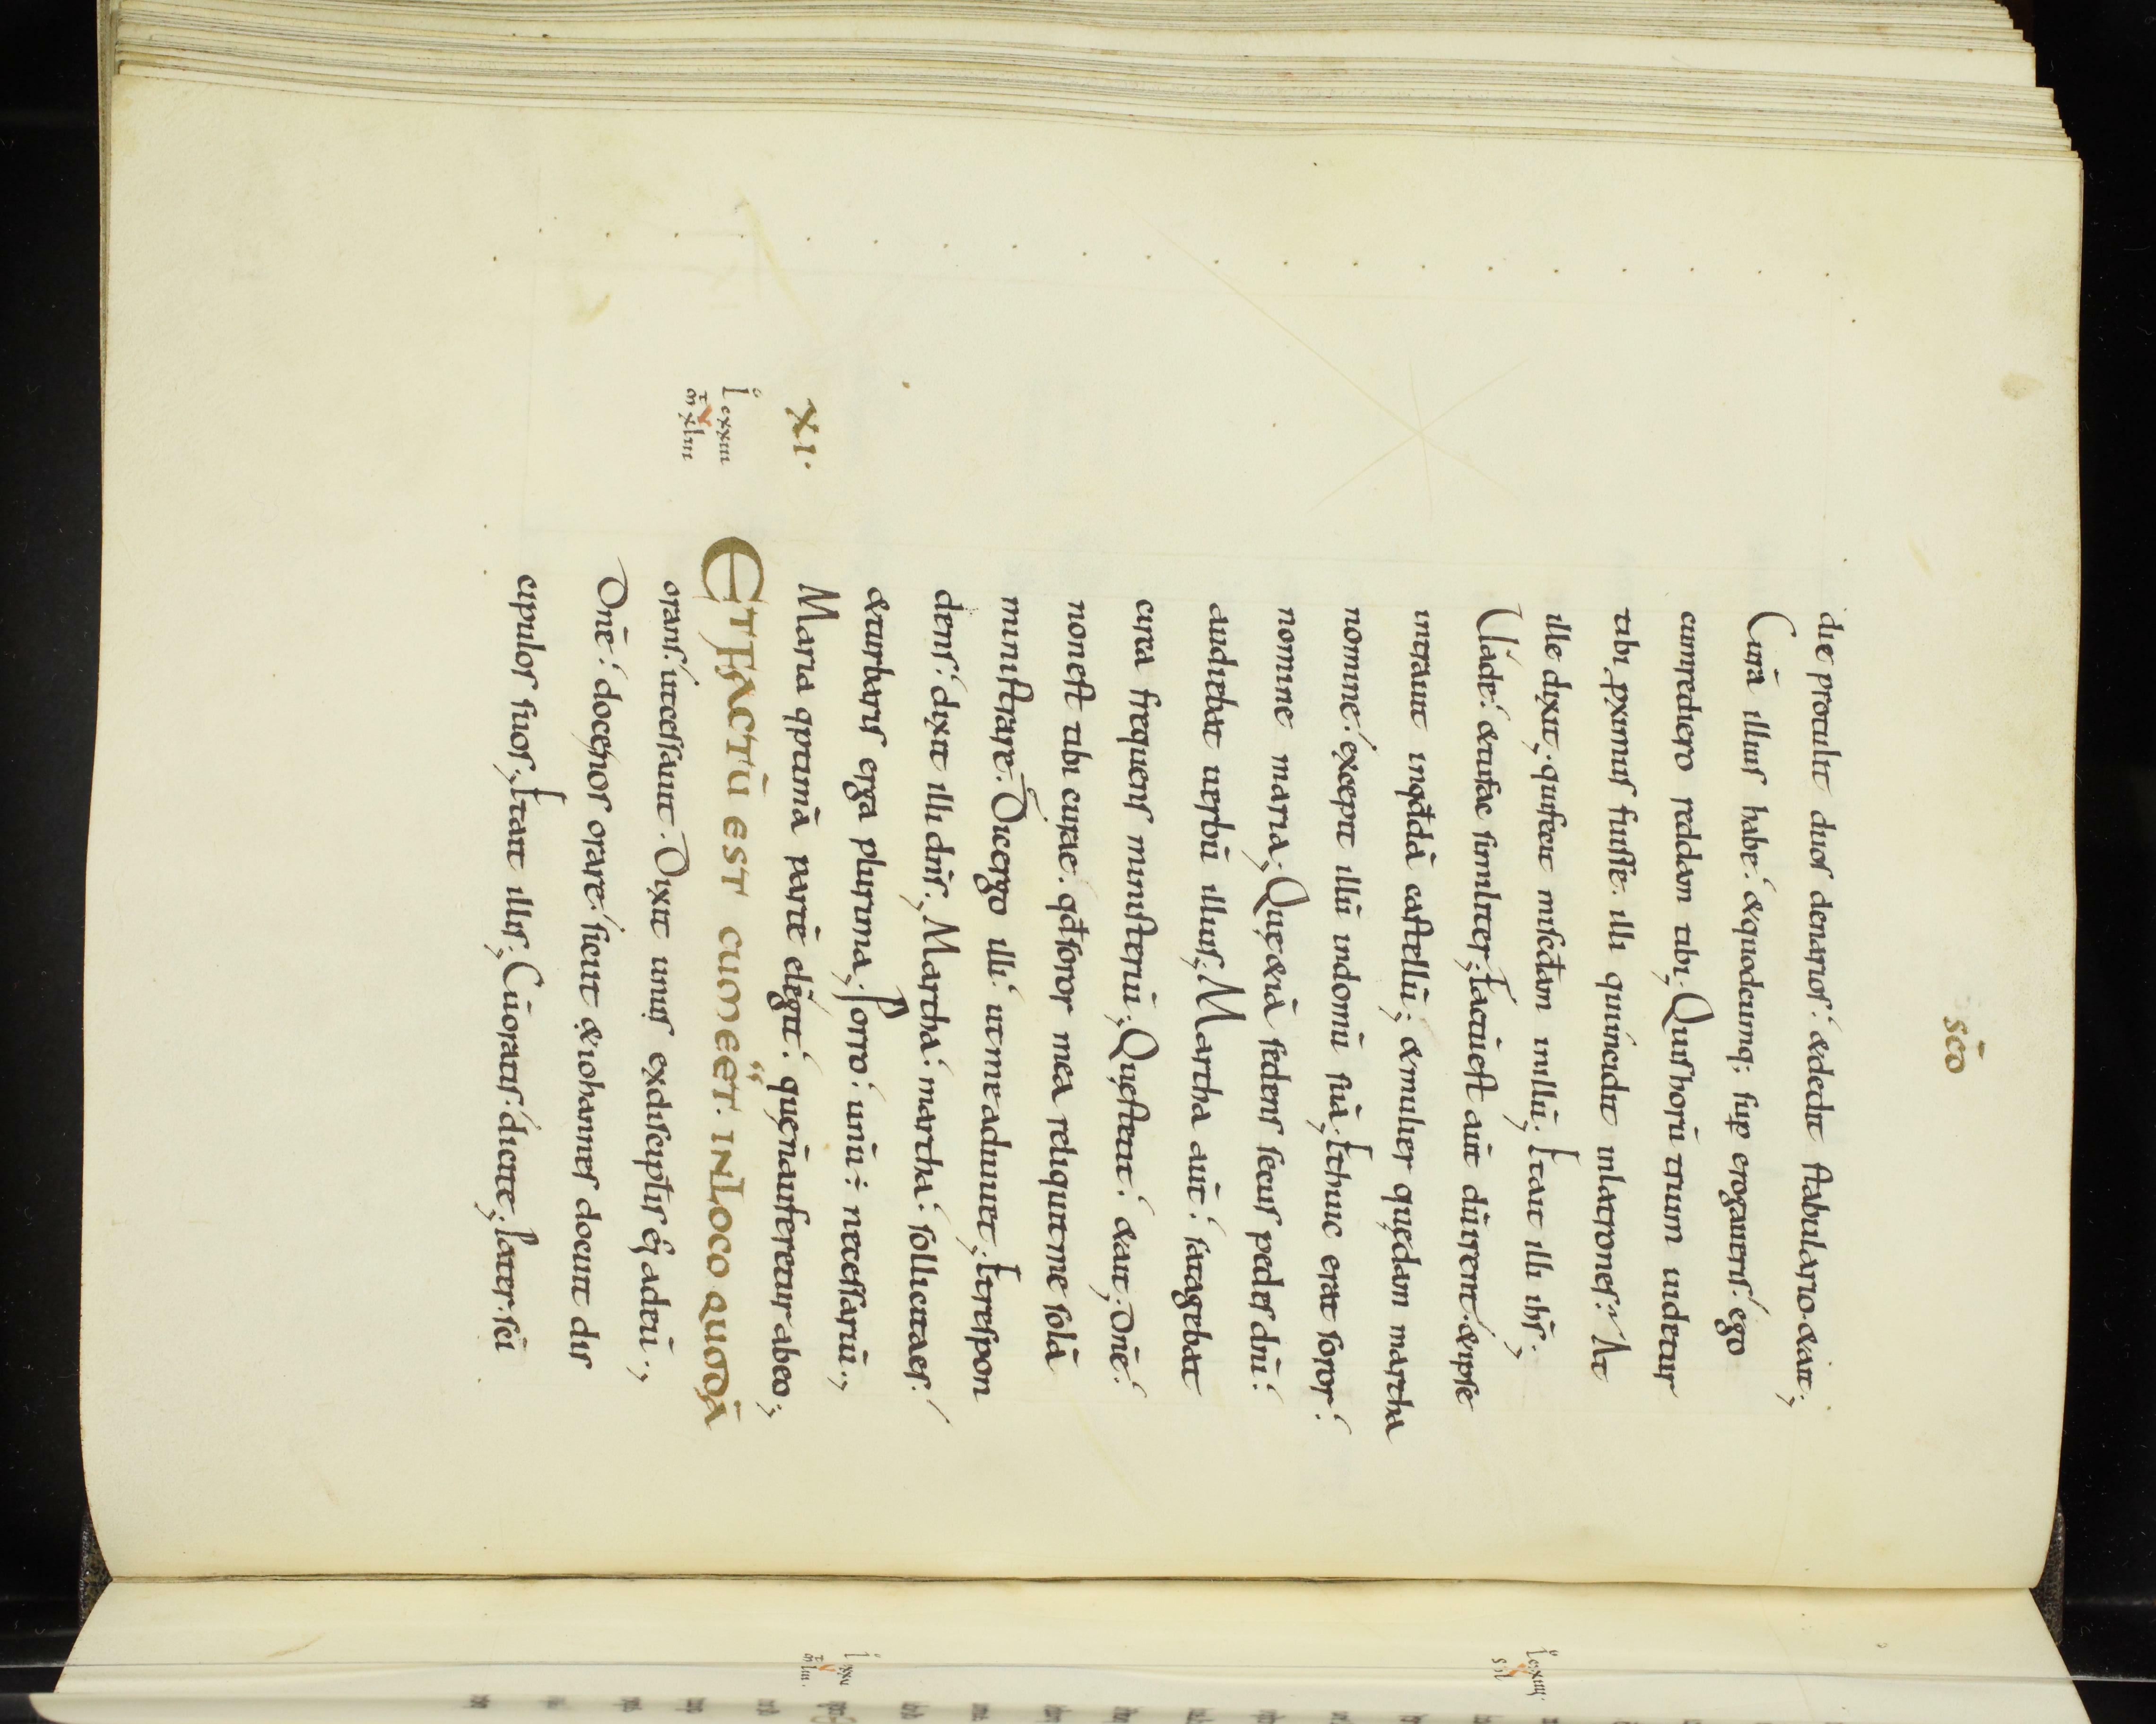 sc̄o
die protulit duos denarios. &dedit stabulario. &ait;
Curā illius habe. &quodcumq; sup erogaueris. ego
cumrediero reddam tibi; Quishorū trium uidetur
tibi pximus fuisse illi quiincidit inlatrones? At
ille dixit. quifecit miscdam inillū; Etait illi ihs;
Uade. &tufac similiter; Factūest aūt dūirent. &ipse
intrauit inqddā castellū; &mulier quędam martha
nomine. excepit illū indomū suā; Ethuic erat soror.
nomine maria; Quę&iā sedens secus pedes dnī.
audiebat uerbū illius; Martha aūt. satagebat
circa frequens ministeriū; Quęstetit. &ait; Dnē.
nonest tibi curae. qdsoror mea reliquitme solā
ministrare. Dicergo illi. utmeadiuuet; Etrespon
dens. dixit illi dns; Martha. martha. sollicitaes.
&turbaris erga plurima; Porro. unū ÷ necessariū;
XI. Maria optimā partē elegit. quęn̄auferetur abeo;
ETFACTŪ EST CUMEET. INLOCO QUODĀ
orans. utcessauit. Dixit unus exdiscipulis ei' adeū;
Dnē. docenos orare. sicut &iohannes docuit dis
cipulos suos; Etait illis; Cūoratis. dicite; Pater. sc̄i